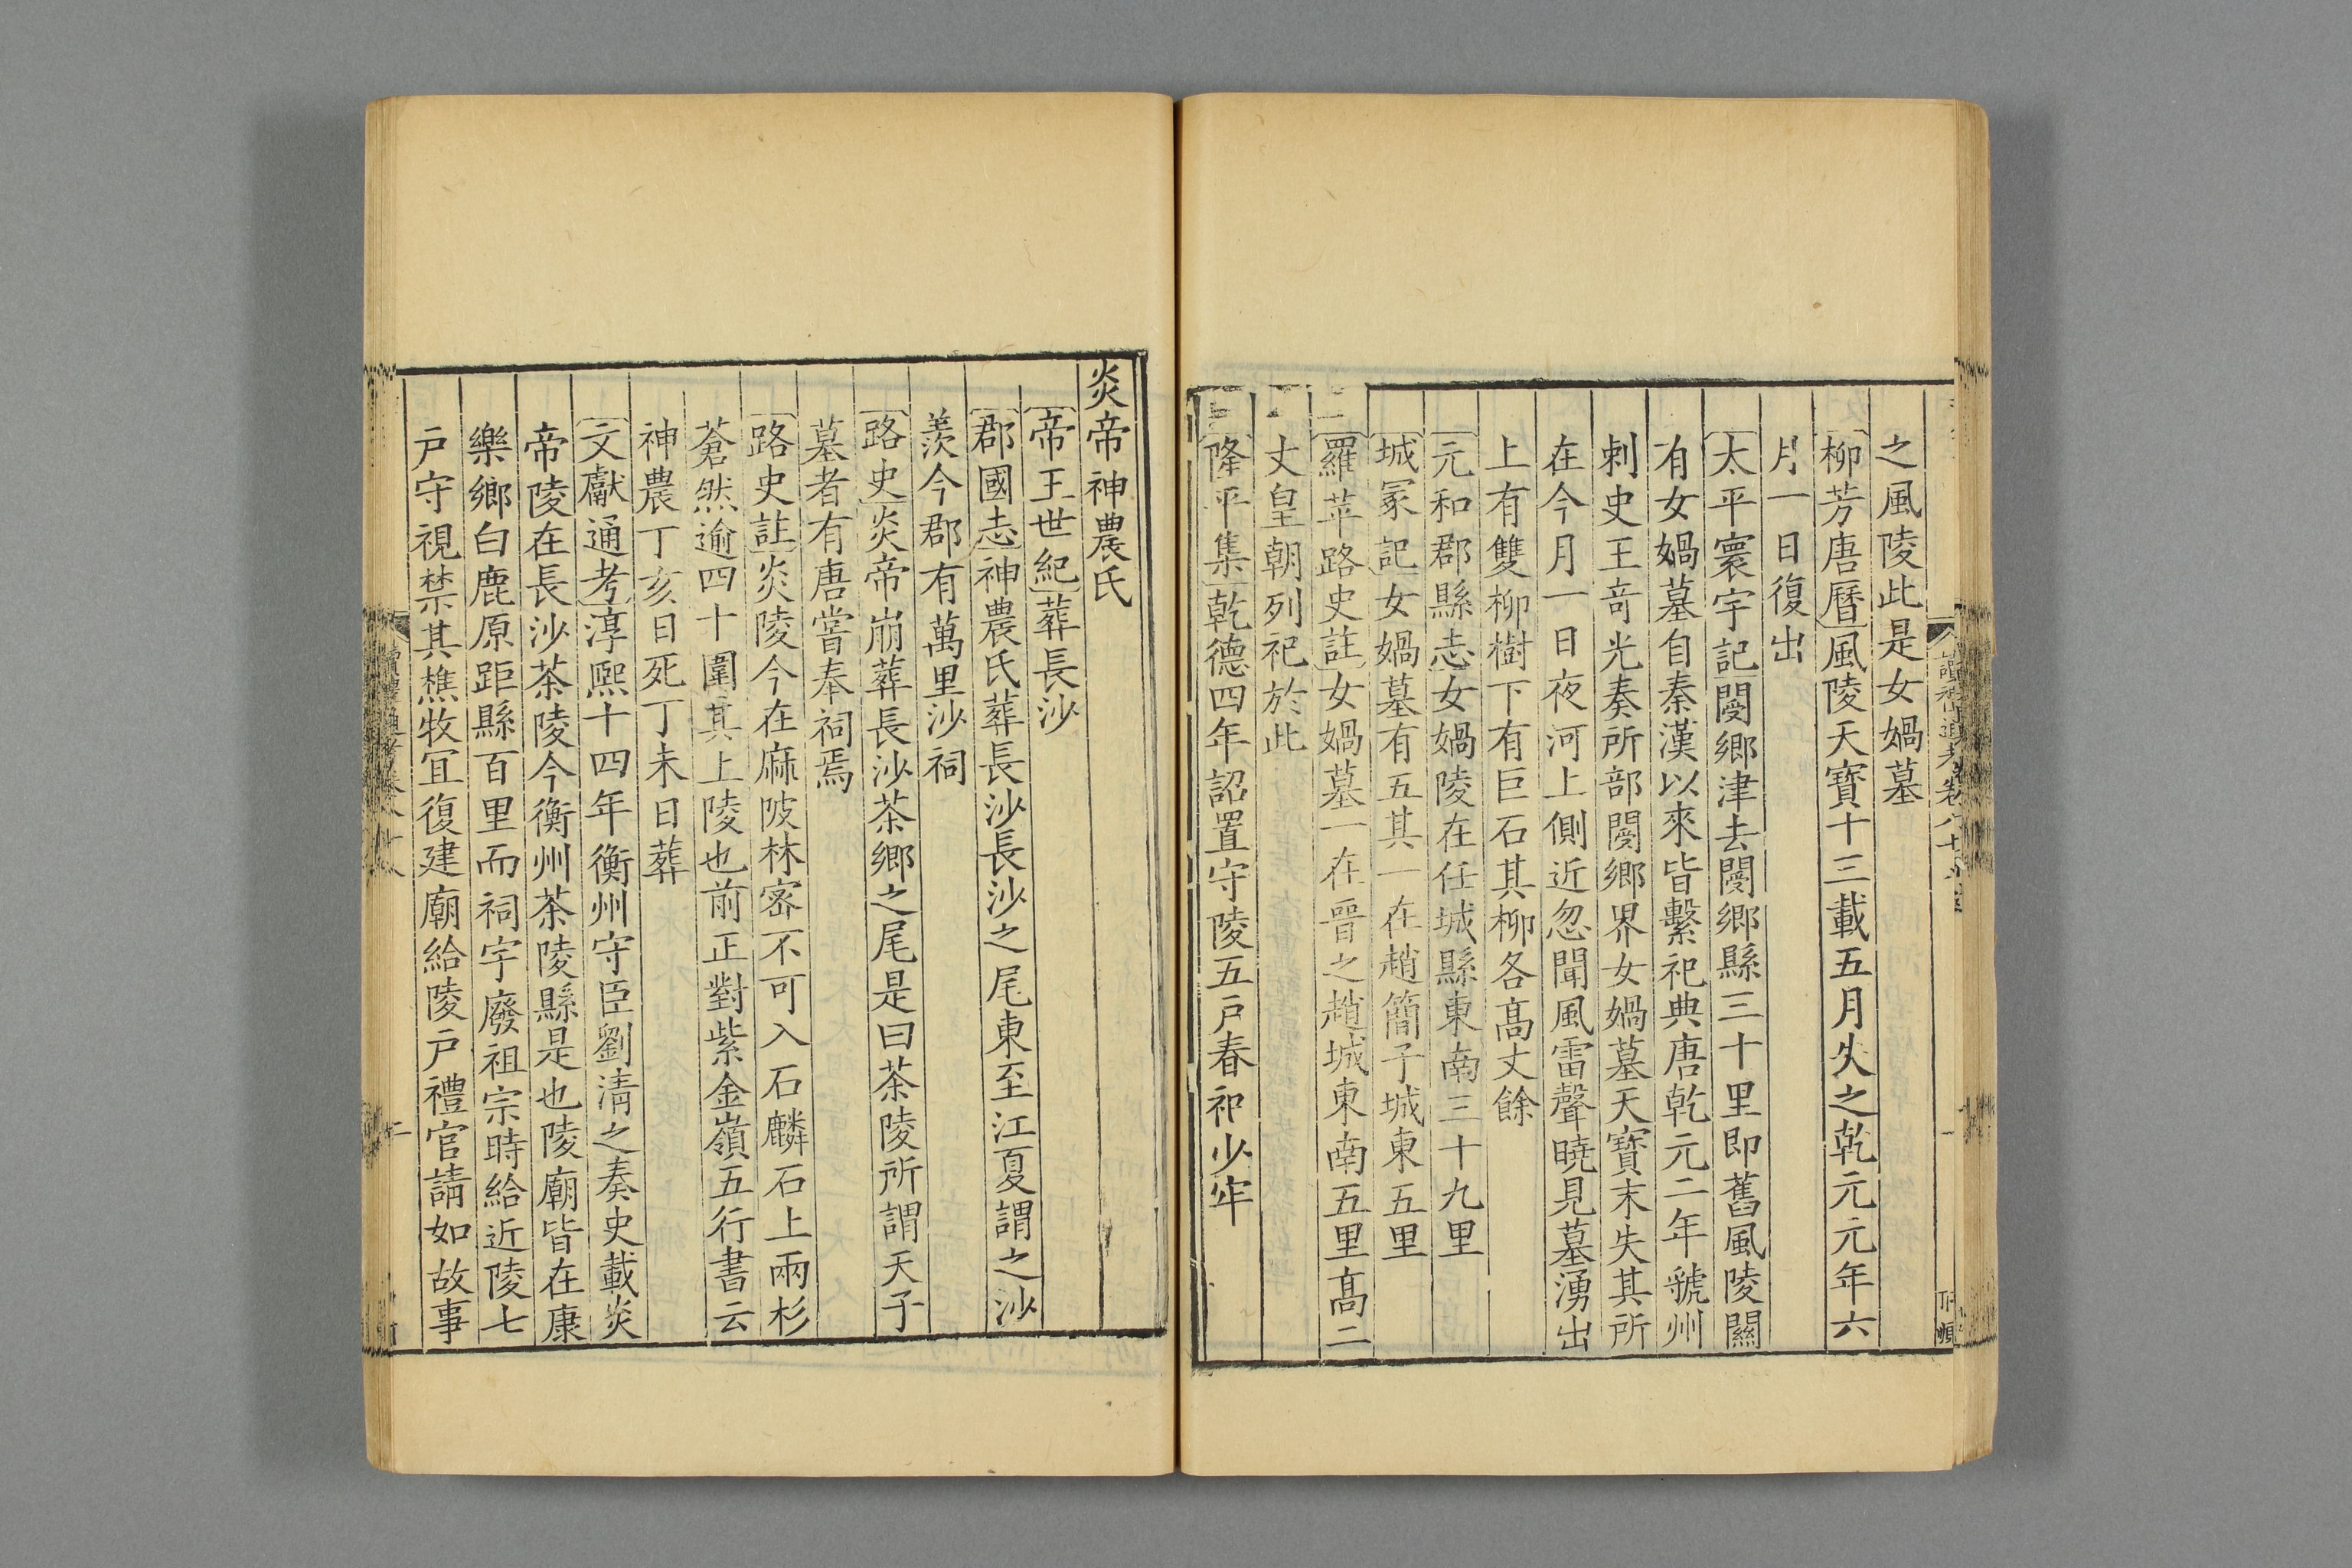 之風陵此是女媧墓
柳芳唐曆風陵天寶十三載五月失之乾元元年六
月一日復出
太平寰宇記閿鄉津去閿鄉縣三十里即舊風陵關
有女媧墓自秦漢以來皆繫祀典唐乾元二年虢州
刺史王奇光奏所部閿鄉界女媧墓天寶末失其所
在今月一日夜河上側近忽聞風雷聲曉見墓湧出
上有雙柳樹下有巨石其柳各高丈餘
元和郡縣志女媧陵在任城縣東南三十九里
城冢記女媧墓有五其一在趙簡子城東五里
羅苹路史註女媧墓一在晉之趙城東南五里高二
丈皇朝列祀於此
隆平集乾德四年詔置守陵五戶春祀少牢
炎帝神農氏
帝王世紀葬長沙
郡國志神農氏葬長沙長沙之尾東至江夏謂之沙
羡今郡有萬里沙祠
路史炎帝崩葬長沙茶鄉之尾是曰茶陵所謂天子
墓者有唐嘗奉祠焉
路史註炎陵今在麻陂林密不可入石麟石上兩杉
蒼然逾四十圍其上陵也前正對紫金嶺五行書云
神農丁亥日死丁未日葬
文獻通考淳熙十四年衡州守臣劉清之奏史載炎
帝陵在長沙茶陵今衡州茶陵縣是也陵廟皆在康
樂鄉白鹿原距縣百里而祠宇廢祖宗時給近陵七
戶守視禁其樵牧宜復建廟給陵戶禮官請如故事